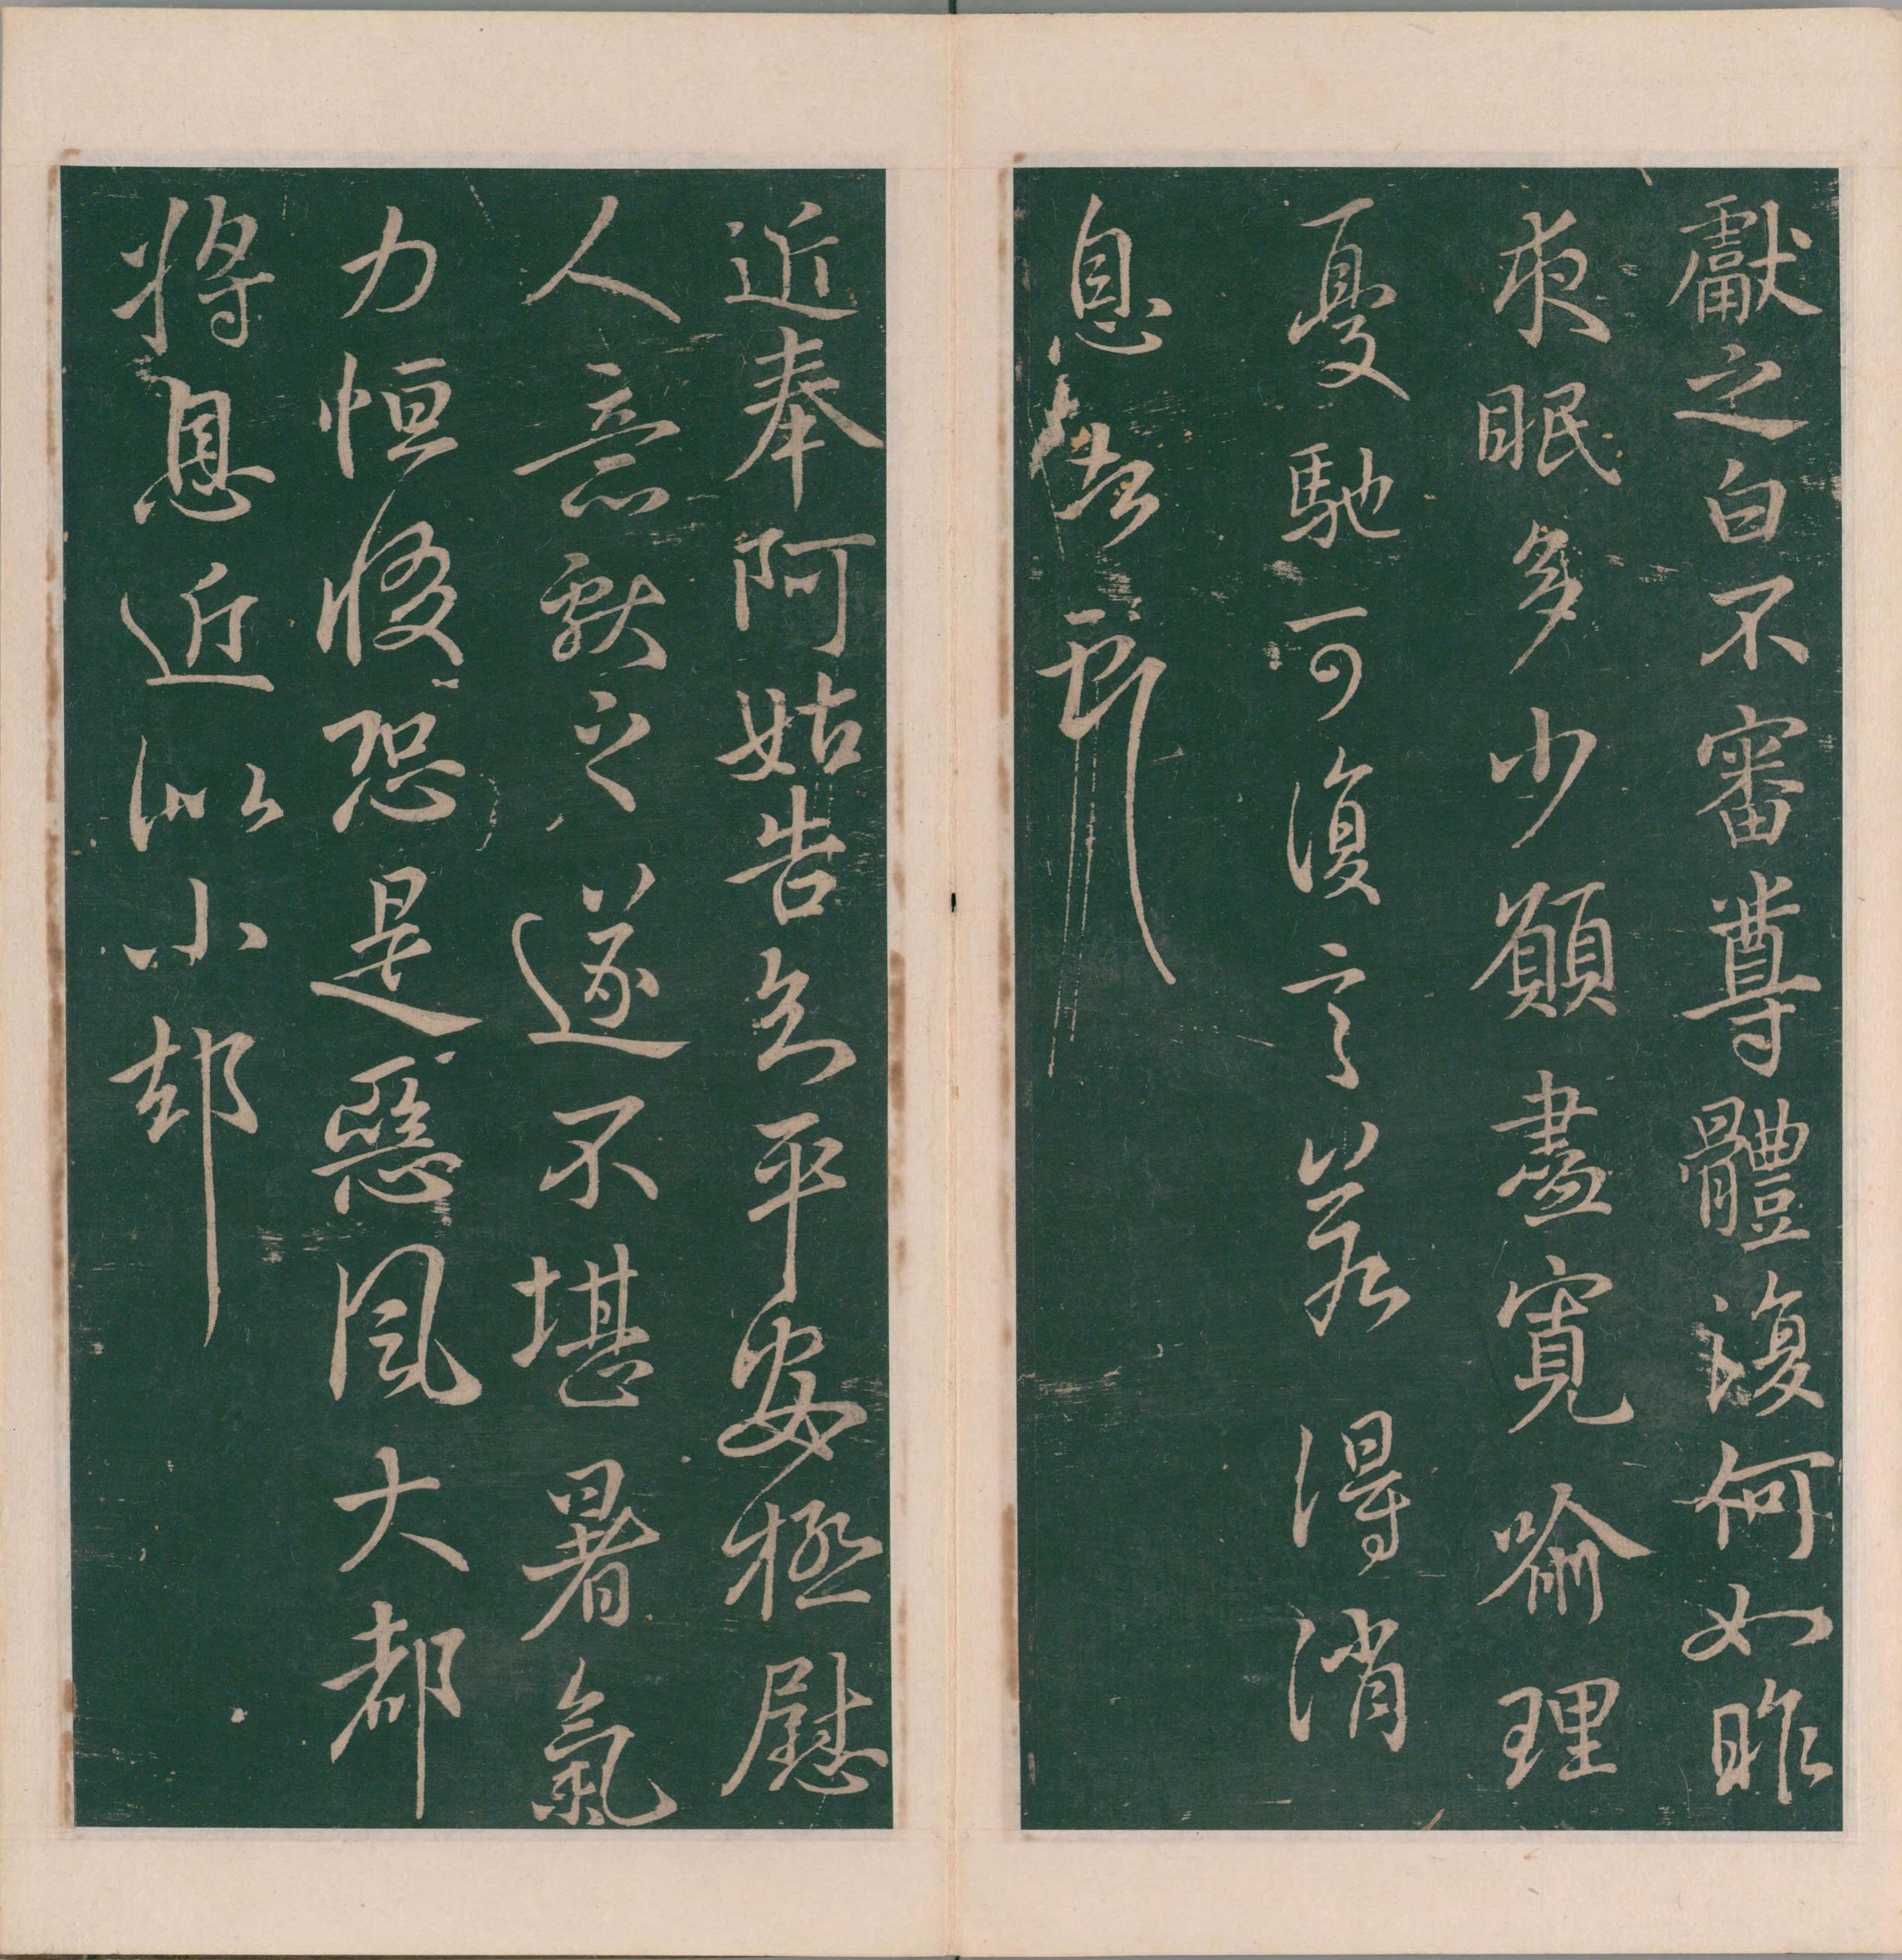 獻之白不審尊體復何如昨
夜眠多少願盡寬喻理
憂馳可復言若得消
息告
近奉阿姑告知平安極慰
人意獻之遂不堪暑氣
力恒惙恐是惡風大都
將息近似小却